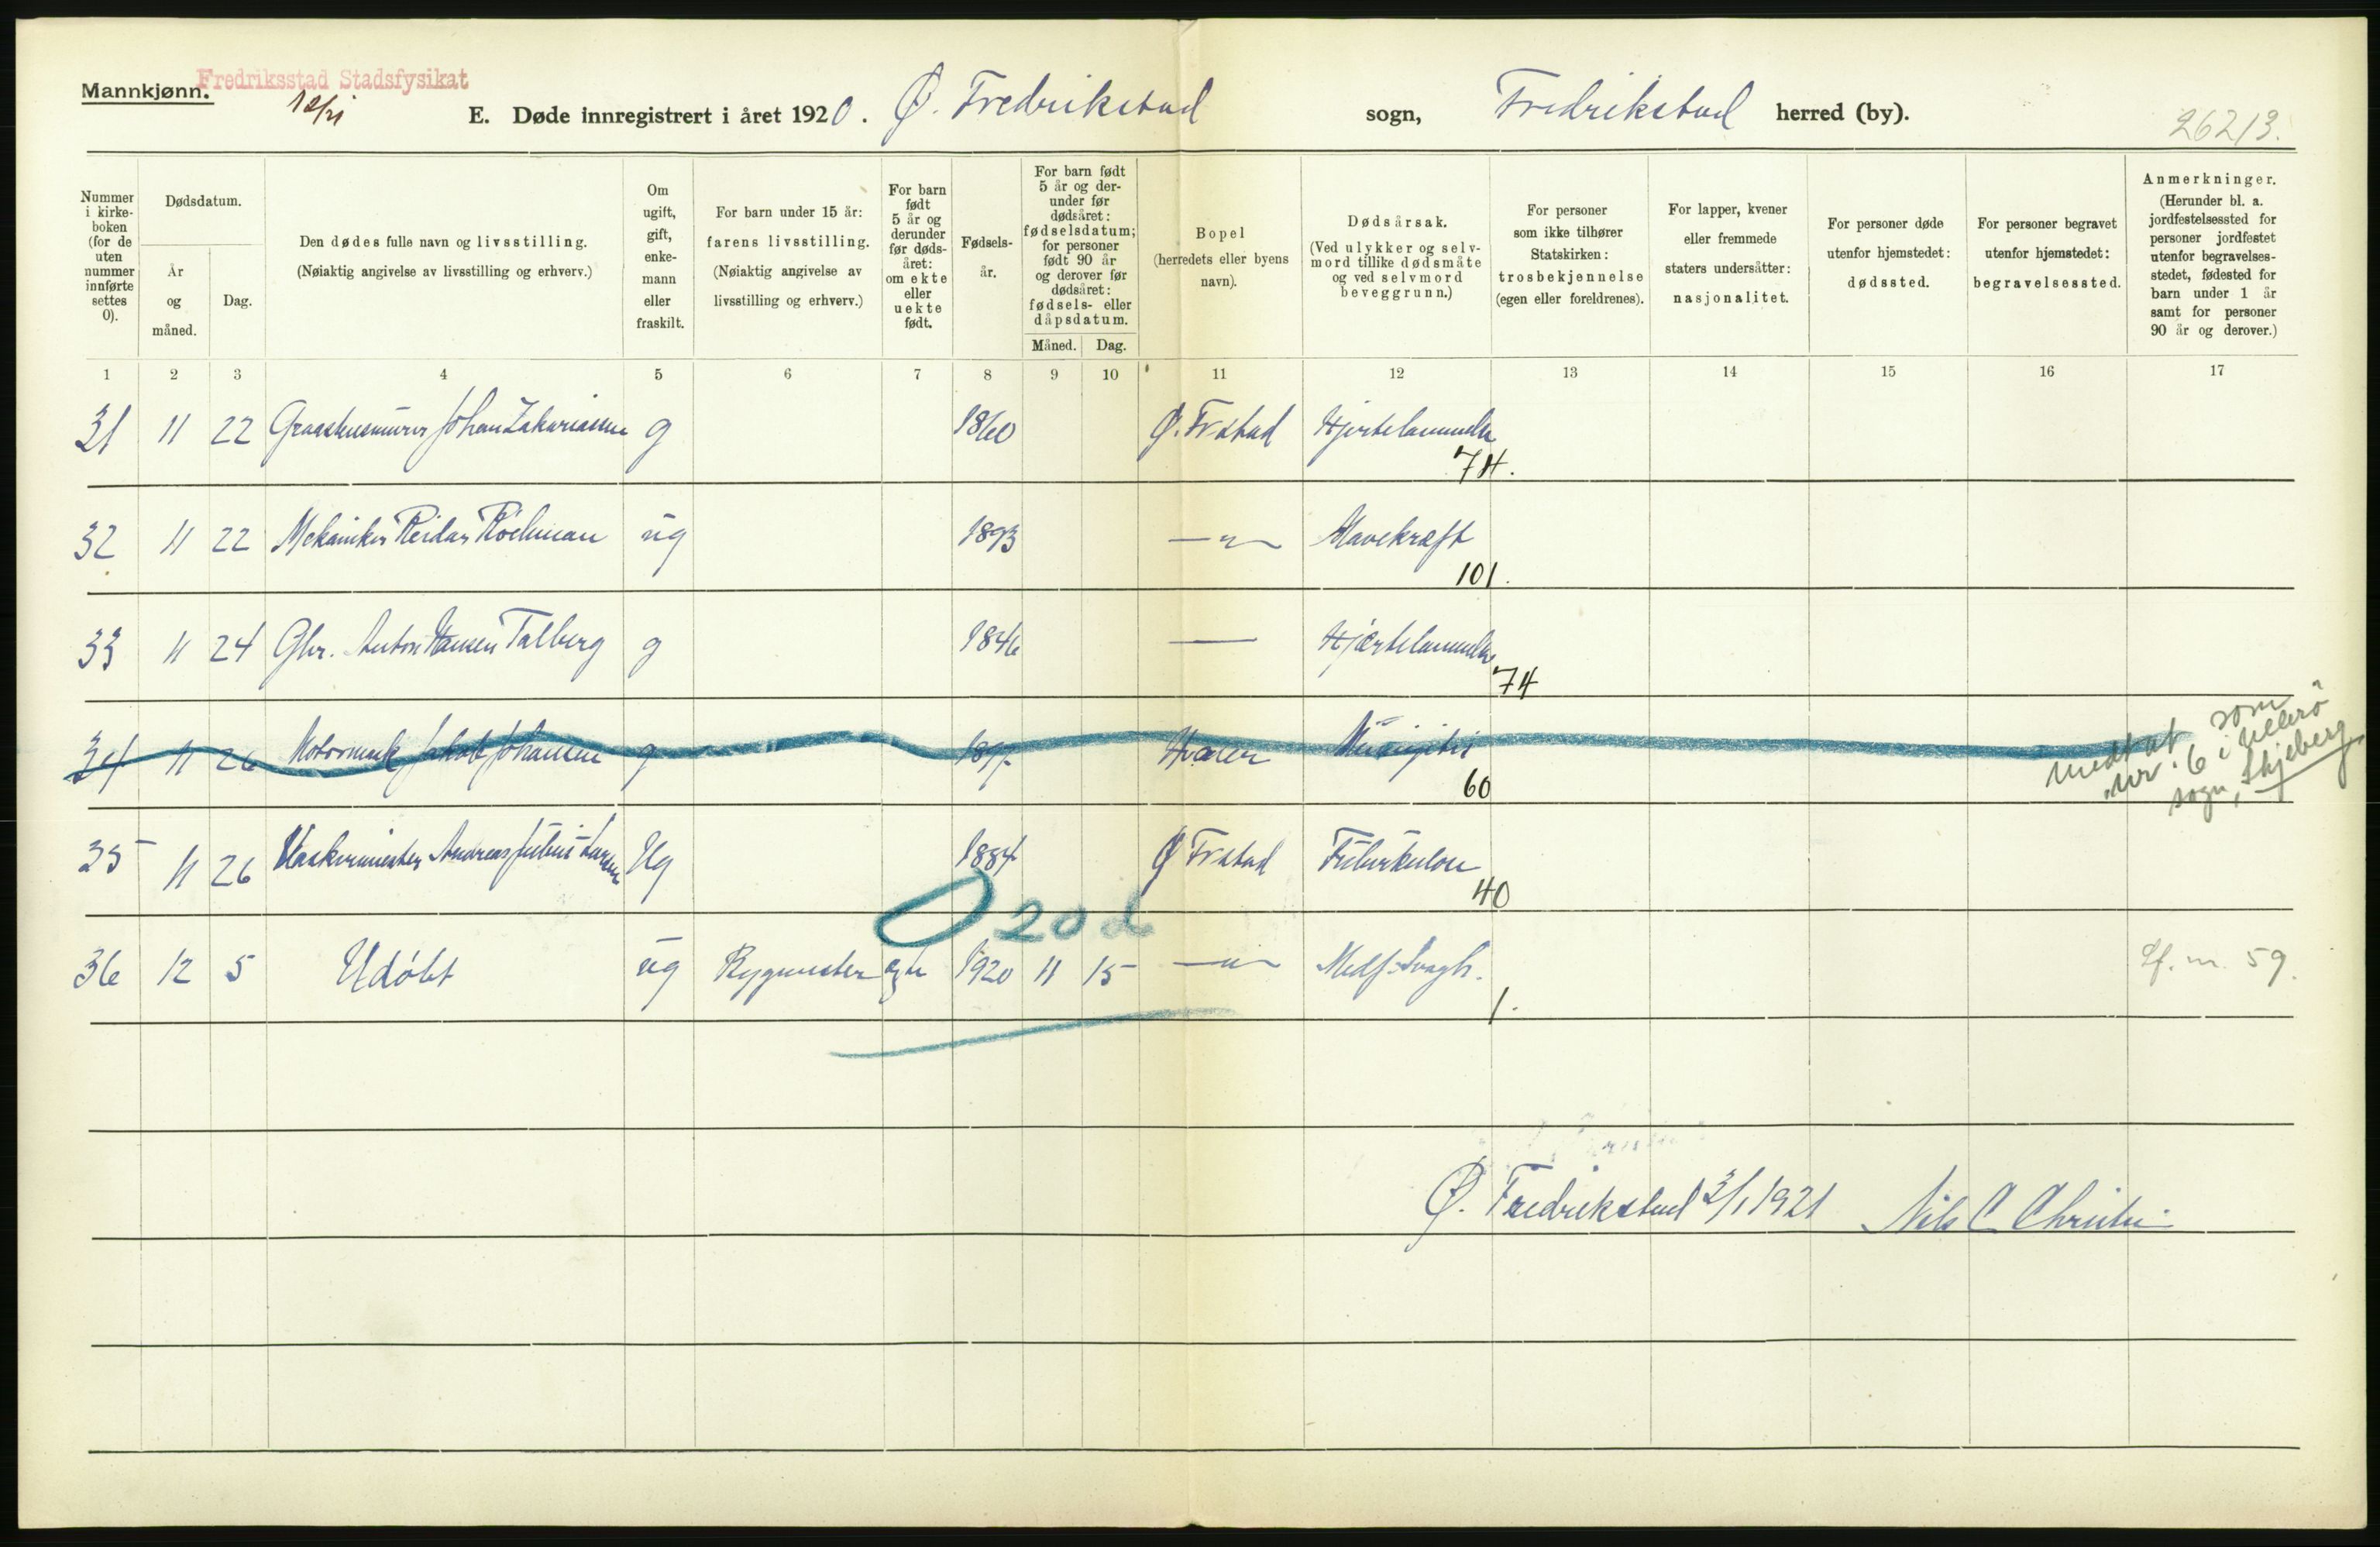 Mannkjønn.
Fredriksstad Stadsfysikat
12/21
E. Døde innregistrert i året 1920. Ø. Fredrikstad sogn, Fredrikstad herred (by).
26213.
Nummer i kirke-boken (for de uten nummer innførte settes 0).
Dødsdatum.
År og måned.
Dag.
Den dødes fulle navn og livsstilling.
(Nøiaktig angivelse av livsstilling og erhverv.)
Om ugift, gift, enke-mann eller fraskilt.
For barn under 15 år: farens livsstilling.
(Nøiaktig angivelse av livsstilling og erhverv.)
For barn født 5 år og derunder før døds-året: om ekte eller uekte født.
Fødsels-år.
For barn født 5 år og der-under før dødsåret: fødselsdatum; for personer født 90 år og derover før dødsåret: fødsels- eller dåpsdatum.
Måned. Dag.
Bopel
(herredets eller byens navn).
Dødsårsak.
(Ved ulykker og selv-mord tillike dødsmåte og ved selvmord beveggrunn.)
For personer som ikke tilhører Statskirken: trosbekjennelse (egen eller foreldrenes).
For lapper, kvener eller fremmede staters undersåtter: nasjonalitet.
For personer døde utenfor hjemstedet: dødssted.
For personer begravet utenfor hjemstedet: begravelsessted.
Anmerkninger.
(Herunder bl. a. jordfestelsessted for personer jordfestet utenfor begravelses-stedet, fødested for barn under 1 år samt for personer 90 år og derover.)
1 2 3 4 5 6 7 8 9 10 11 12 13 14 15 16 17
31 11 22 Johan Zakariassen g 1860 Ø. Frstad Hjertelammelse
74.
32 11 22 Mekaniker Reidar ug 1893 —"— Mavekræft
101.
33 11 24 Gbr. Anton Hansen Talberg g 1846 — Hjertelammelse
74
34 11 26 Jakob Johansen g 189 Hvaler Meningitis
60
medtat som nr. 6 i Ullerö sogn, Skjeberg
35 11 26 Andreas Julius Larsen Ug 1884 Ø Frstad Tuberkulose
40
20 d
36 12 5 Udøbt ug egte 1920 11 15 —"— Medf. Svagh.
1.
Cf. nr. 59.
Ø. Fredrikstad 3/1 1921 Nils C Christie